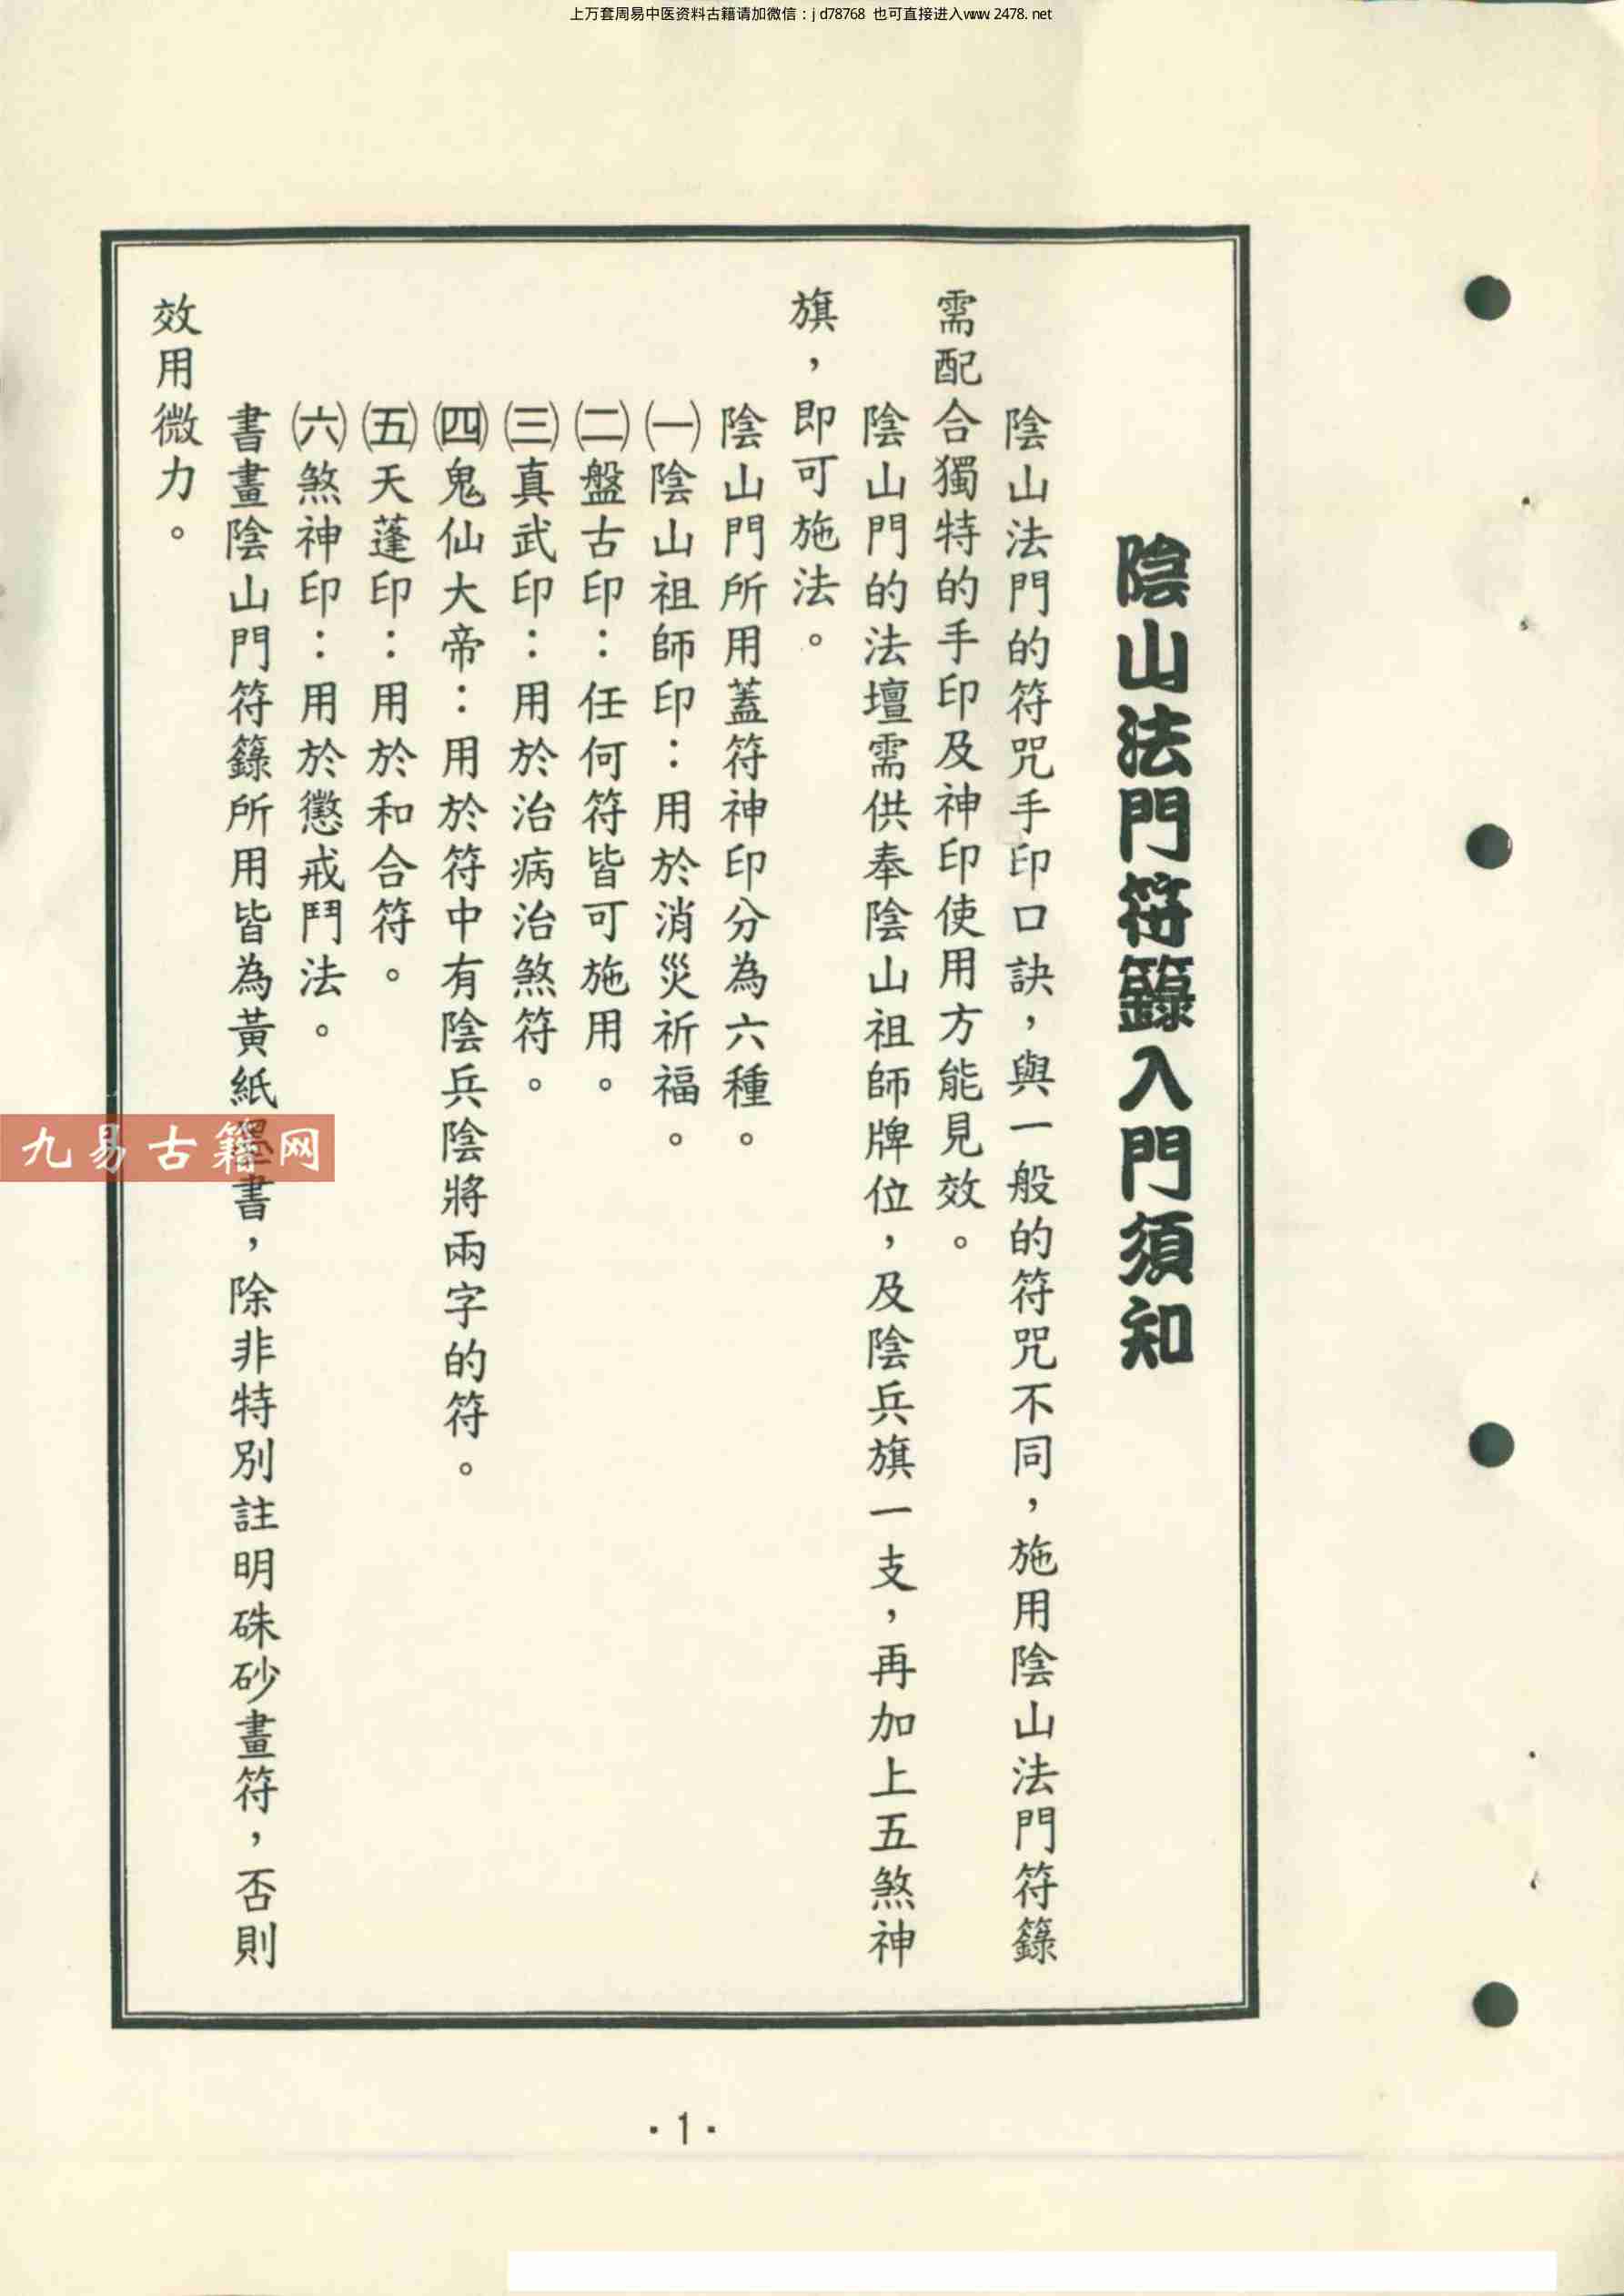 上万套周易中医资料古籍请加微信：jd78768 也可直接进入www.2478.net
陰山法門符籙入門須知
陰山法門的符咒手印口訣，與一般的符咒不同，施用陰山法門符籙
需配合獨特的手印及神印使用方能見效。
陰山門的法壇需供奉陰山祖師牌位，及陰兵旗一支，再加上五煞神
旗，即可施法。
陰山門所用蓋符神印分為六種。
㈠陰山祖師印：用於消災祈福。
㈡盤古印：任何符皆可施用。
㈢真武印：用於治病治煞符。
㈣鬼仙大帝：用於符中有陰兵陰將兩字的符。
㈤天蓬印：用於和合符。
㈥煞神印：用於懲戒鬥法。
書畫陰山門符籙所用皆為黃紙墨書，除非特別註明硃砂畫符，否則
效用微力。
九易古籍网
·1·